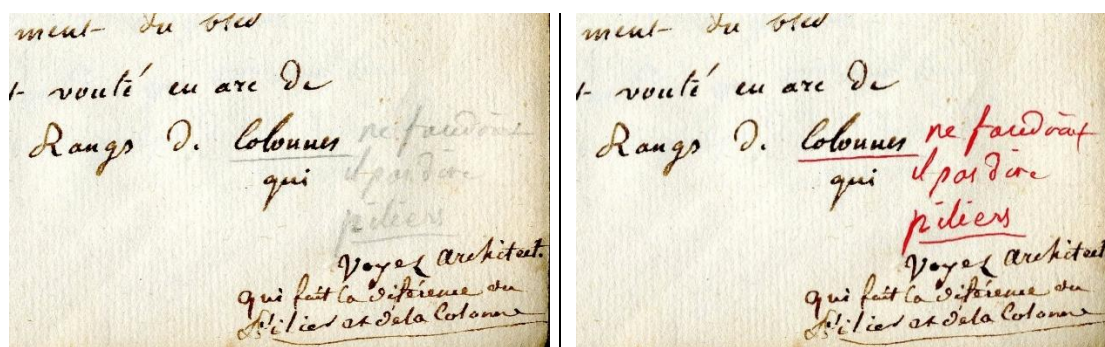 ment du bled
t vouté en arc de
Rangs d. Colonnes
qui
ne faudroit
il pas dire
piliers
Voyez architect.
qui fait la diférence du
Pilier et de la Colonne
ment du bled
t vouté en arc de
Rangs d. Colonnes
qui
ne faudroit
il pas dire
piliers
Voyez architect
qui fait la diférence du
Pilier et de la Colonne